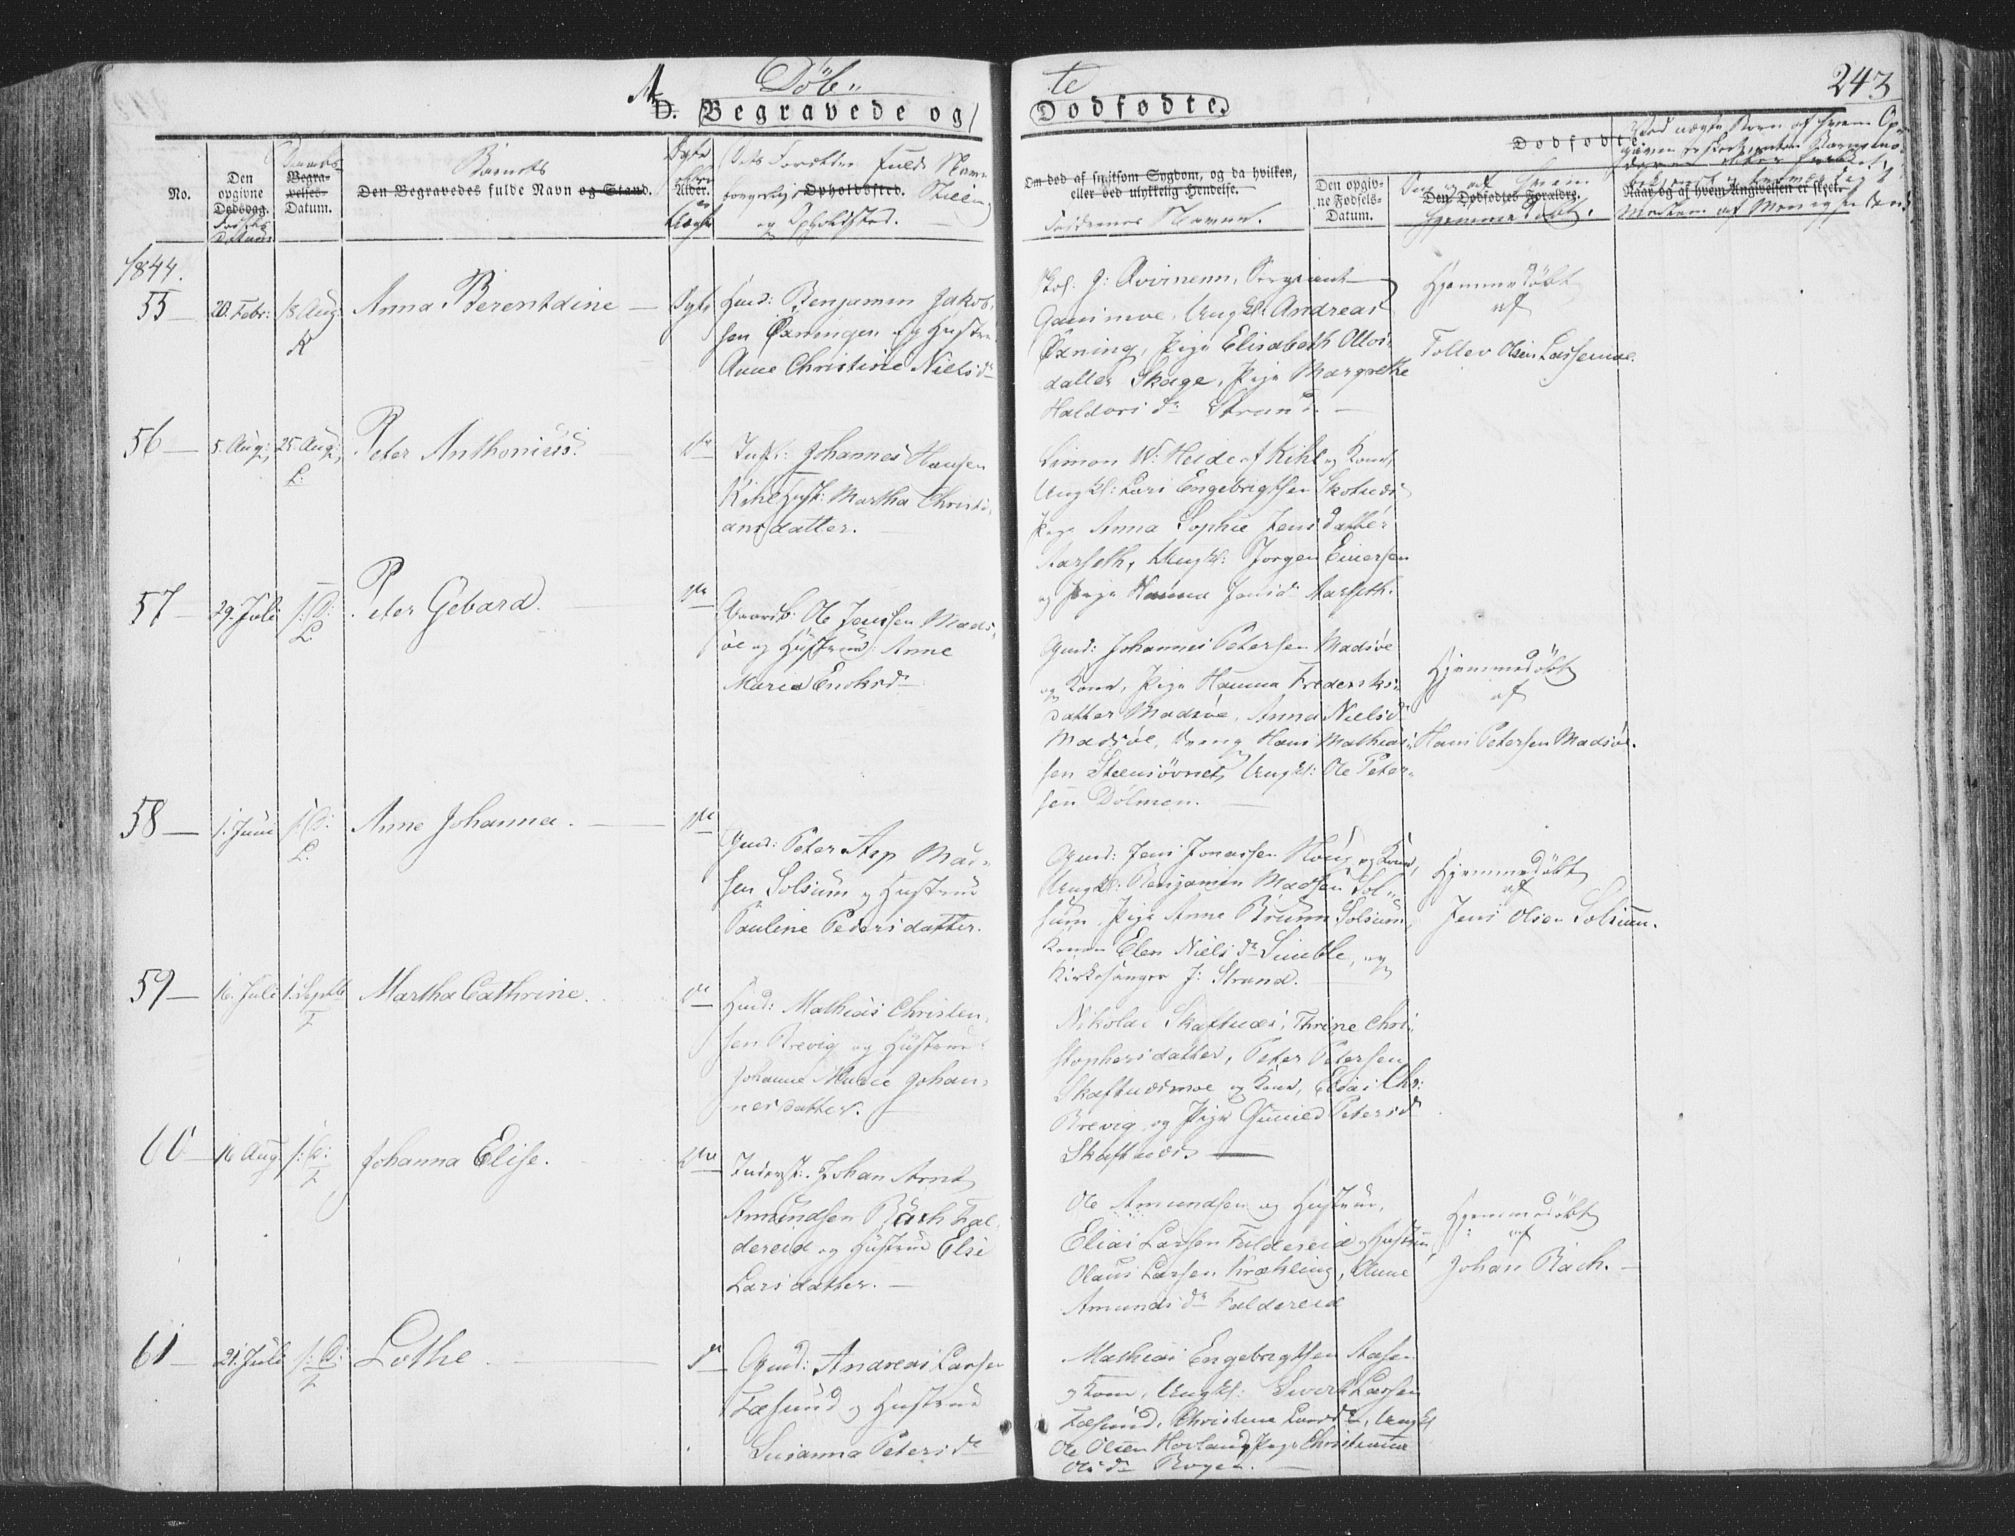 A. Döbte
243
D. Begravede og Dodfodte.
No.
Den opgivne Dodsdag.
Daabs
Begravelses-Datum.
Barnets
Den Begravedes fulde Navn og Stand.
Alder.
Opholdssted.
og Opholdssted.
Om død af smitsom Sygdom, og da hvilken, eller ved ulykkelig Hendelse.
Faddernes Navne.
Dodfodte.
Den opgivne Fodsels-Datum.
Den Dodfodtes Forældre.
Hjemmedöbt.
Naar og af hvem Angivelsen er skeet.
1844.
55 —
20. Febr:
18 Aug:
K
Anna Berentdine —
Huusm: Benjamin Jakob-
sen Øxningen og Hustru
Anne Christine Nielsd
J: Qvinenn, Sergiant
Ganimoe, Ungkl: Andreas
Øxning, Pige Elisabeth Olos-
datter Skage, Pige Margrethe
Haldorsdr Strand. —
Hjemmedöbt
af
Tollev Olsen Lassemoe.
56 —
5. Aug:
25. Aug:
L:
Peter Anthonius.
Inst: Johannes Hansen
Kihl Hust: Martha Christi-
ansdatter. —
Simon W: Heide af Kihl og Kone,
Ungkl: Lars Engebrigtsen Skotnes
Pige Anna Sophie Jensdatter
Aarseth, Ungkl: Jorgen Einersen
og Pige Hanna Jensdr Aarseth.
57 —
29. Juli
L.
Peter Gebard.
Gaardb: Ole Jenssen Mads-
öe og Hustrue: Anne
Maria Enoksdr
Gmd: Johannes Petersen Madsöe
og Kone, Pige Hanna Frederiks-
datter Madsöe, Anna Nielsdr
Madsöe, Dreng Hans Mathias-
sen Steensövnet, Ungkl: Ole Peter-
sen Dölmen. —
Hjemmedöbt
af
Hans Petersen Madsöe.
58 —
1. Juni
L.
Anne Johanna. —
Gmd: Peter Asp Mad-
sen Solsum og Hustrue
Pauline Pedersdatter.
Gmd: Jens Jonassen Houg og Kone,
Ungkl: Benjamin Madsen Sol-
sum, Pige Anne Brunn Solsum,
Konen Elen Nielsdr Sembe, og
Kirkesanger J: Strand.
Hjemmedöbt
af
Jens Olsen Solsum.
59 —
16. Juli
1. Septb
F
Martha Cathrine.
Huusm: Mathias Christen-
sen Brevig og Hustrue
Johanne Marie Johan-
nesdatter. —
Nikolai Skaftnæs, Thrine Chri-
stophersdatter, Peter Petersen
Skaftnæsmoe og Kone, Elias Chr:
Brevig og Pige Gunild Petersdr
Skaftnæs —
60 —
16 Aug
F
Johanna Elise.
Inderst: Johan Arnt
Amundsen Bach Fol-
dereid og Hustrue Elsi
Larsdatter. —
Ole Amundsen og Hustrue,
Elias Larsen Foldereid og Hustru,
Olaus Larsen Kræhling, Anne
Amundsdr Foldereid
Hjemmedöbt
af
Johan Bach. —
61 —
21. Juli
F
Lothe
Gmd: Andreas Larsen
Fæsund og Hustrue
Susanna Petersdr
Mathias Engebrigtsen Aasen
og Kone, Ungkl: Sivert Larsen
Fæsund, Christina Larsdr, Ungkl
Ole Olsen Hovland, Pige Christianna
Olsdr